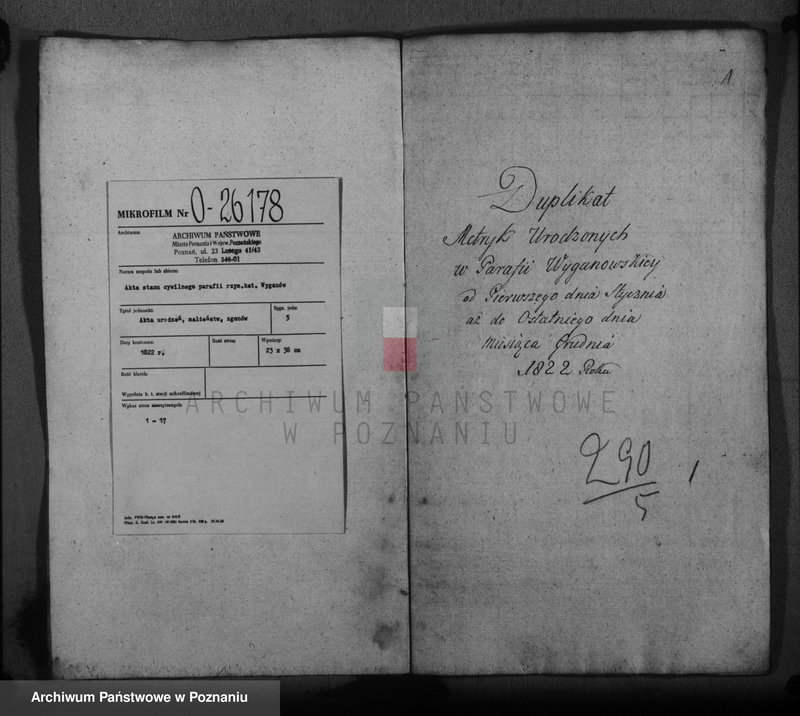 MIKROFILM Nr O-26178
Archiwum:
ARCHIWUM PAŃSTWOWE
Miasta Poznania i Wojew. Poznańskiego
Poznań, ul. 23 Lutego 41/43
Telefon 546-01
Nazwa zespołu lub zbioru:
Akta stanu cywilnego parafii rzym.kat. Wyganów
Tytuł jednostki:
Akta urodzeń, małżeństw, zgonów
Sygn. jedn:
5
Daty krańcowe:
1822 r.
Ilość stron:
Wymiary:
23 x 38 cm
Ilość klatek:
Wypełnia k. t. stacji mikrofilmującej
Wykaz stron niezapisanych:
1 - 17
1
Duplikat
Metryk Urodzonych
w Parafii Wyganowskiey
od Pierwszego dnia Stycznia
aż do Ostatniego dnia
Miesiąca Grudnia
1822 Roku
290
5
1
ARCHIWUM PAŃSTWOWE
W POZNANIU
Archiwum Państwowe w Poznaniu